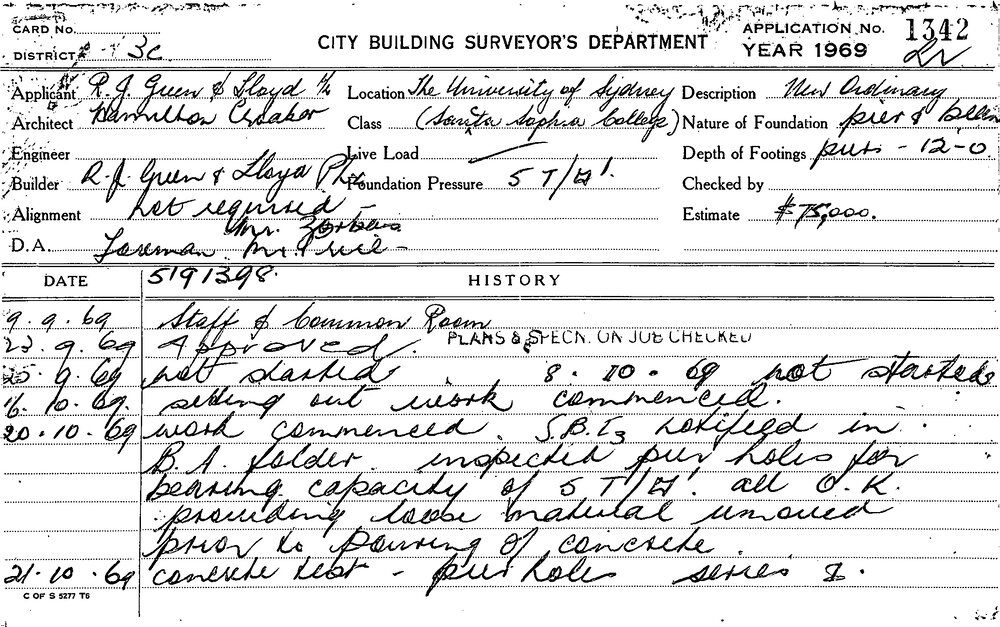 CARD No.
DISTRICT 3C
CITY BUILDING SURVEYOR'S DEPARTMENT
APPLICATION No. 1342
YEAR 1969
Applicant R. J. Green & Lloyd
Location The University of Sydney
Description New Ordinary
Architect Hamilton Croaker
Class (Santa Sophia College)
Nature of Foundation pier &
Engineer
Live Load
Depth of Footings piers - 12-0
Builder R. J. Green & Lloyd P/L
Foundation Pressure 5 T/□'.
Checked by
Alignment not required -
Estimate $75,000.
Mr.
D.A. Foreman Mr.
5191398.
DATE HISTORY
9.9.69 Staff & Common Room
23.9.69 Approved. PLANS & SPECN. ON JOB CHECKED
9.69 not started 8.10.69 not started
16.10.69. setting out work commenced.
20.10.69 work commenced. S.B.I3 notified in
B.A. folder. inspected pier holes for
bearing capacity of 5 T/□'. all O.K.
providing loose material removed
prior to pouring of concrete.
21.10.69 concrete test - pier holes series
C OF S 5277 T6